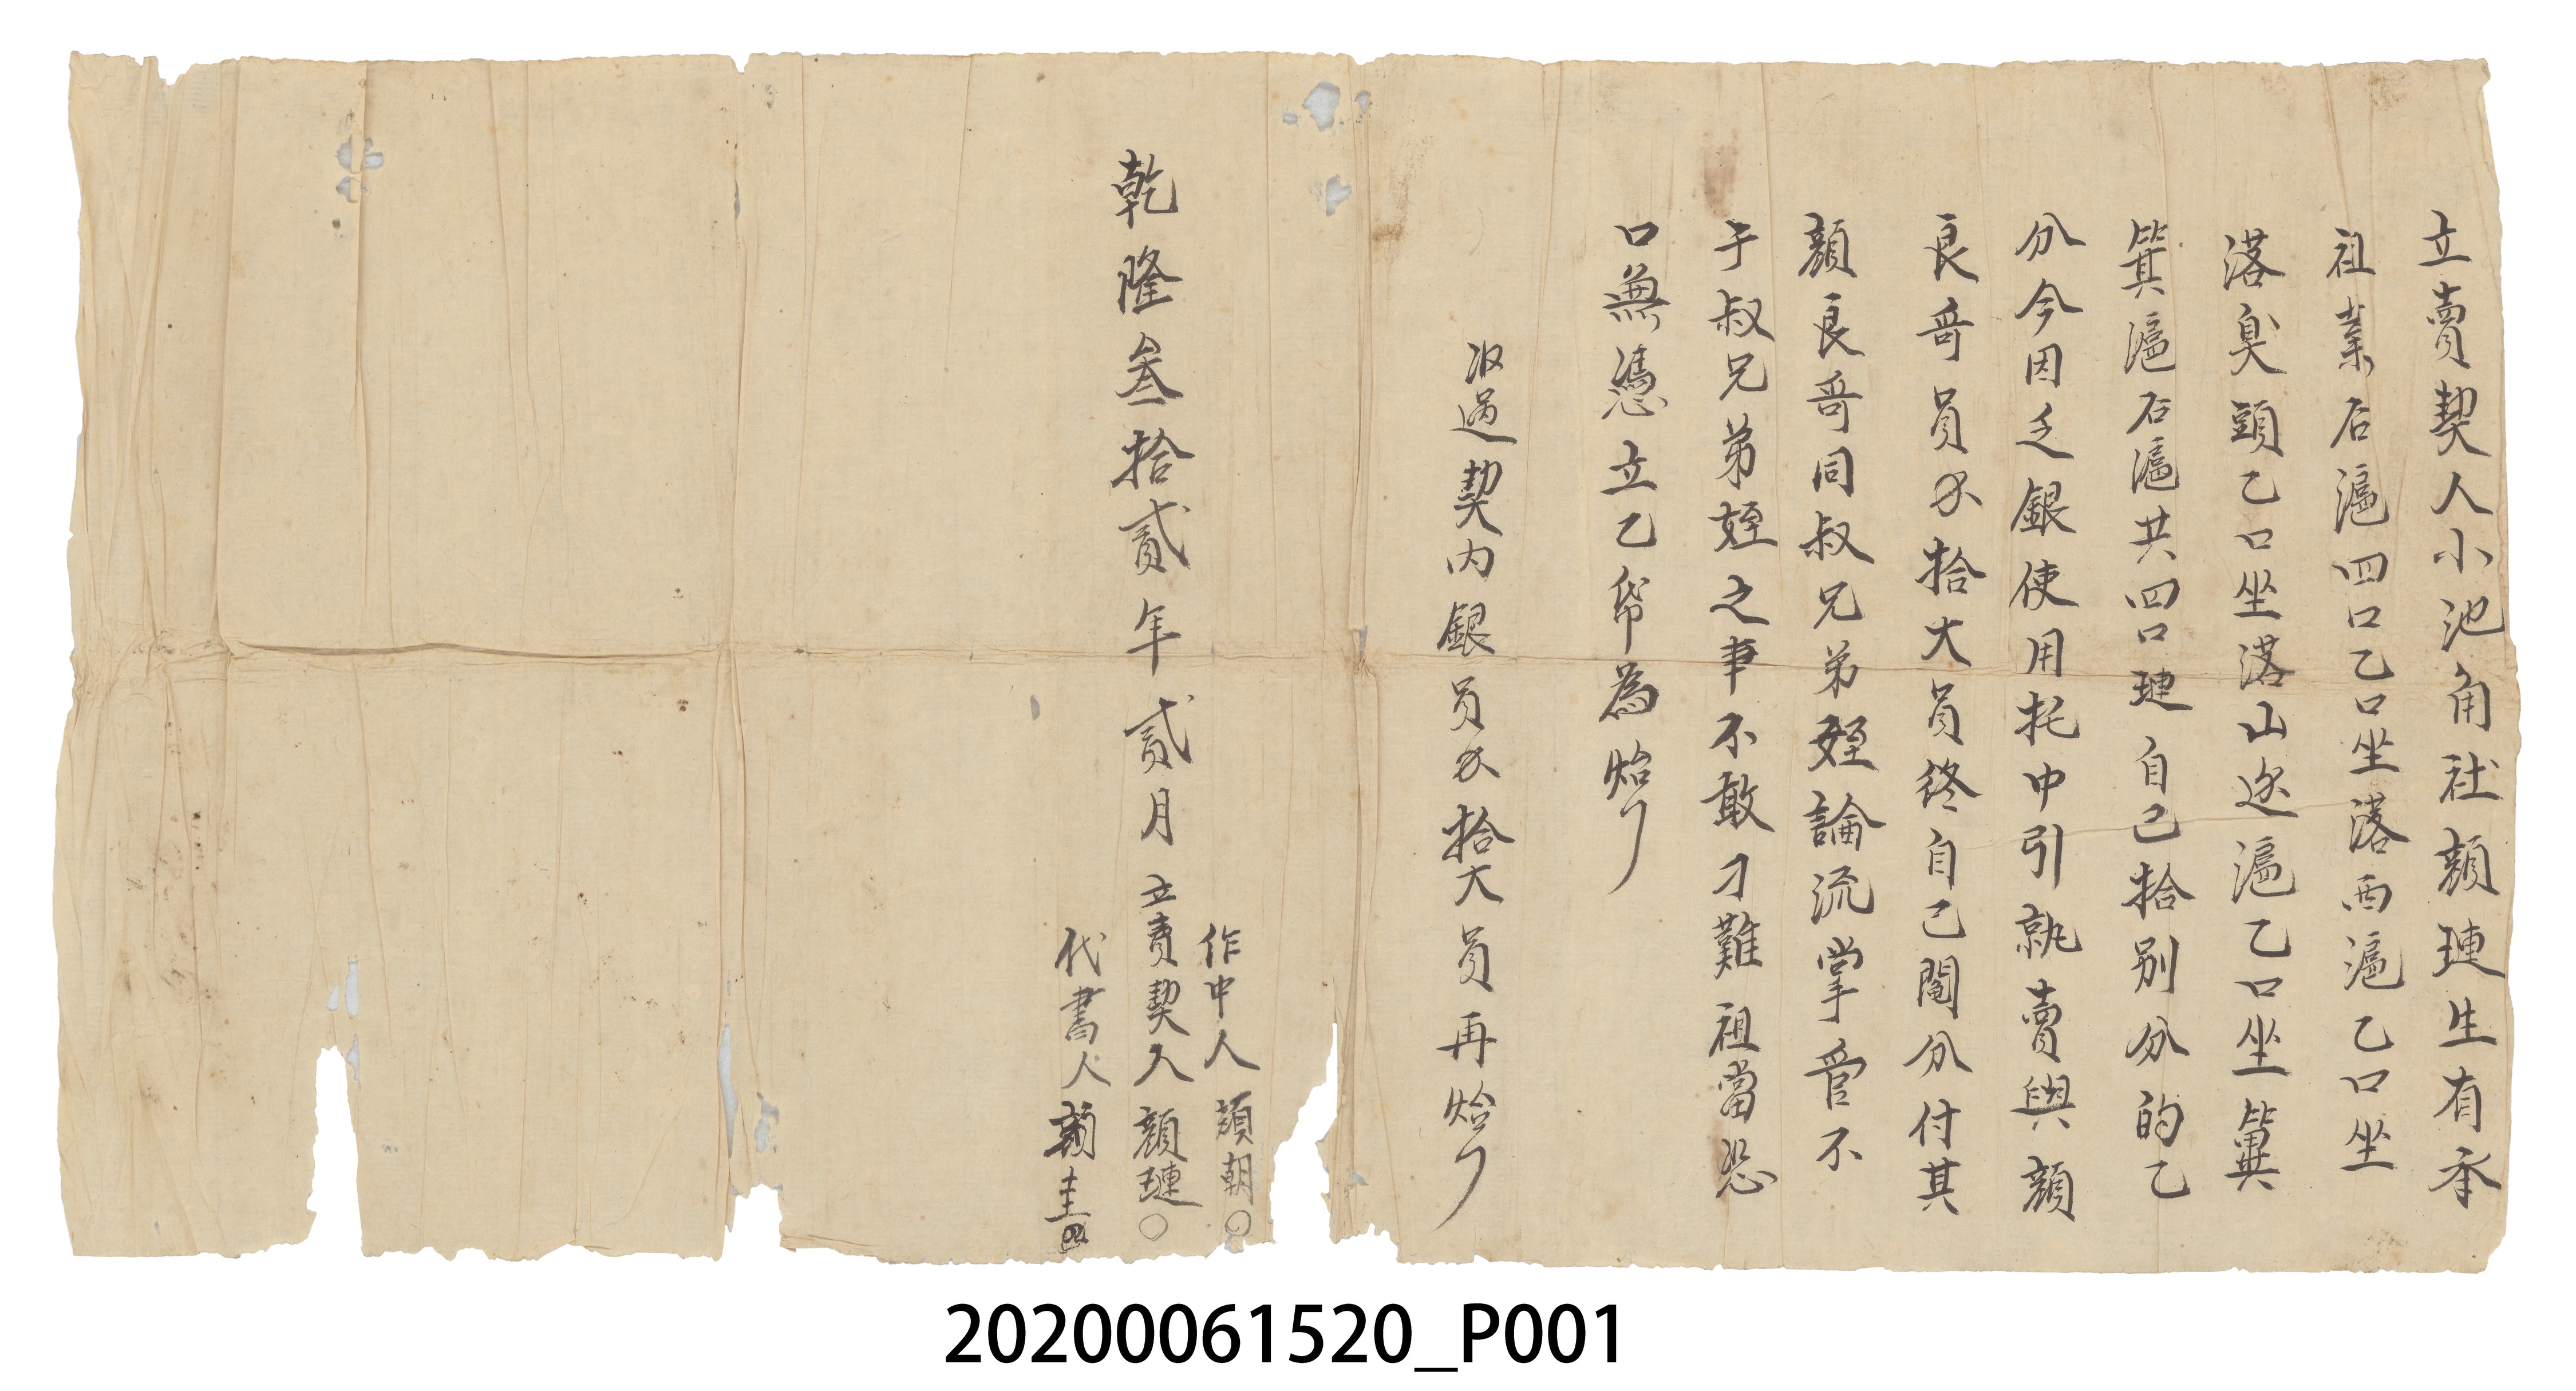 立賣契人小池角社顏璉生有承
祖業石滬四口乙口坐落西滬乙口坐
落臭頭乙口坐落山边滬乙口坐篢
箕滬石滬共四口璉自己拾別分的乙
分今因乏銀使用托中引就賣與顏
良哥員 拾大員終自己鬮分付其
顏良哥同叔兄弟姪論流掌管不
于叔兄弟姪之事不敢刁難祖當恐
口無憑立乙帋為炤
收過契内銀員 拾大員再炤
作中人顏朝
乾隆叁拾貳年貳月立賣契人顏璉
代書人顏圭
20200061520_P001